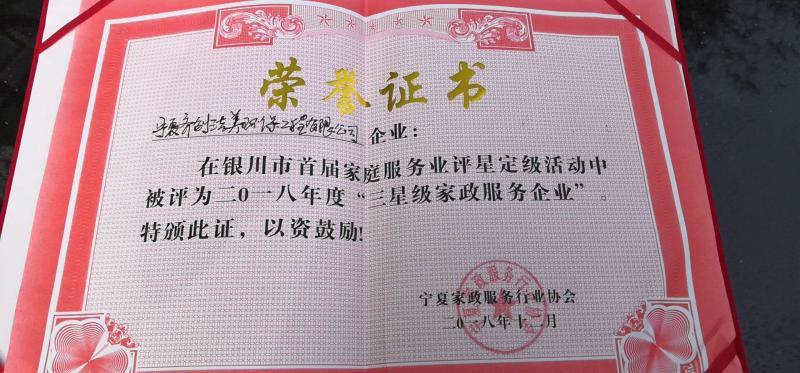 荣誉证书
宁夏齐创洁美环保工程有限公司 企业：
在银川市首届家庭服务业评星定级活动中
被评为二〇一八年度“三星级家政服务企业”。
特颁此证，以资鼓励!
宁夏家政服务行业协会
二〇一八年十二月